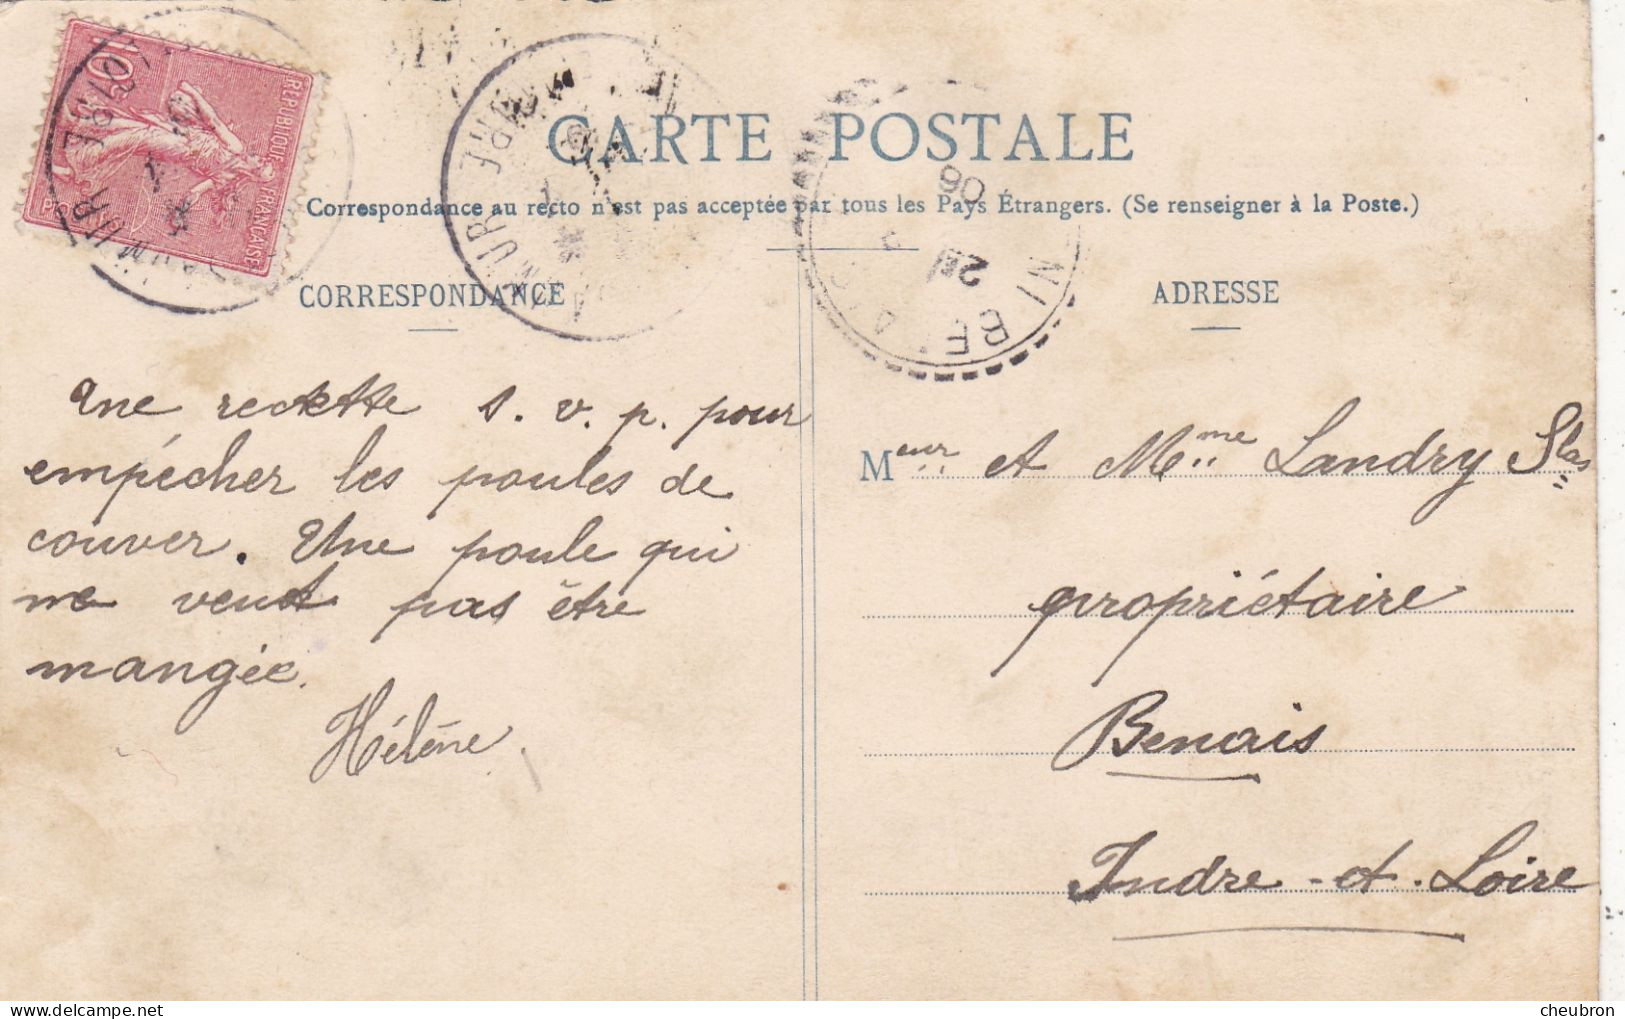 10
REPUBLIQUE FRANÇAISE
CARTE POSTALE
Correspondance au recto n'est pas acceptée par tous les Pays Étrangers. (Se renseigner à la Poste.)
CORRESPONDANCE
ADRESSE
Une recette s. v. p. pour
empécher les poules de
couver. Une poule qui
ne veut pas être
mangée.
Hélène.
Meur et Mme Landry Slas
propriétaire
Benais
Indre-et-Loire
cheubron